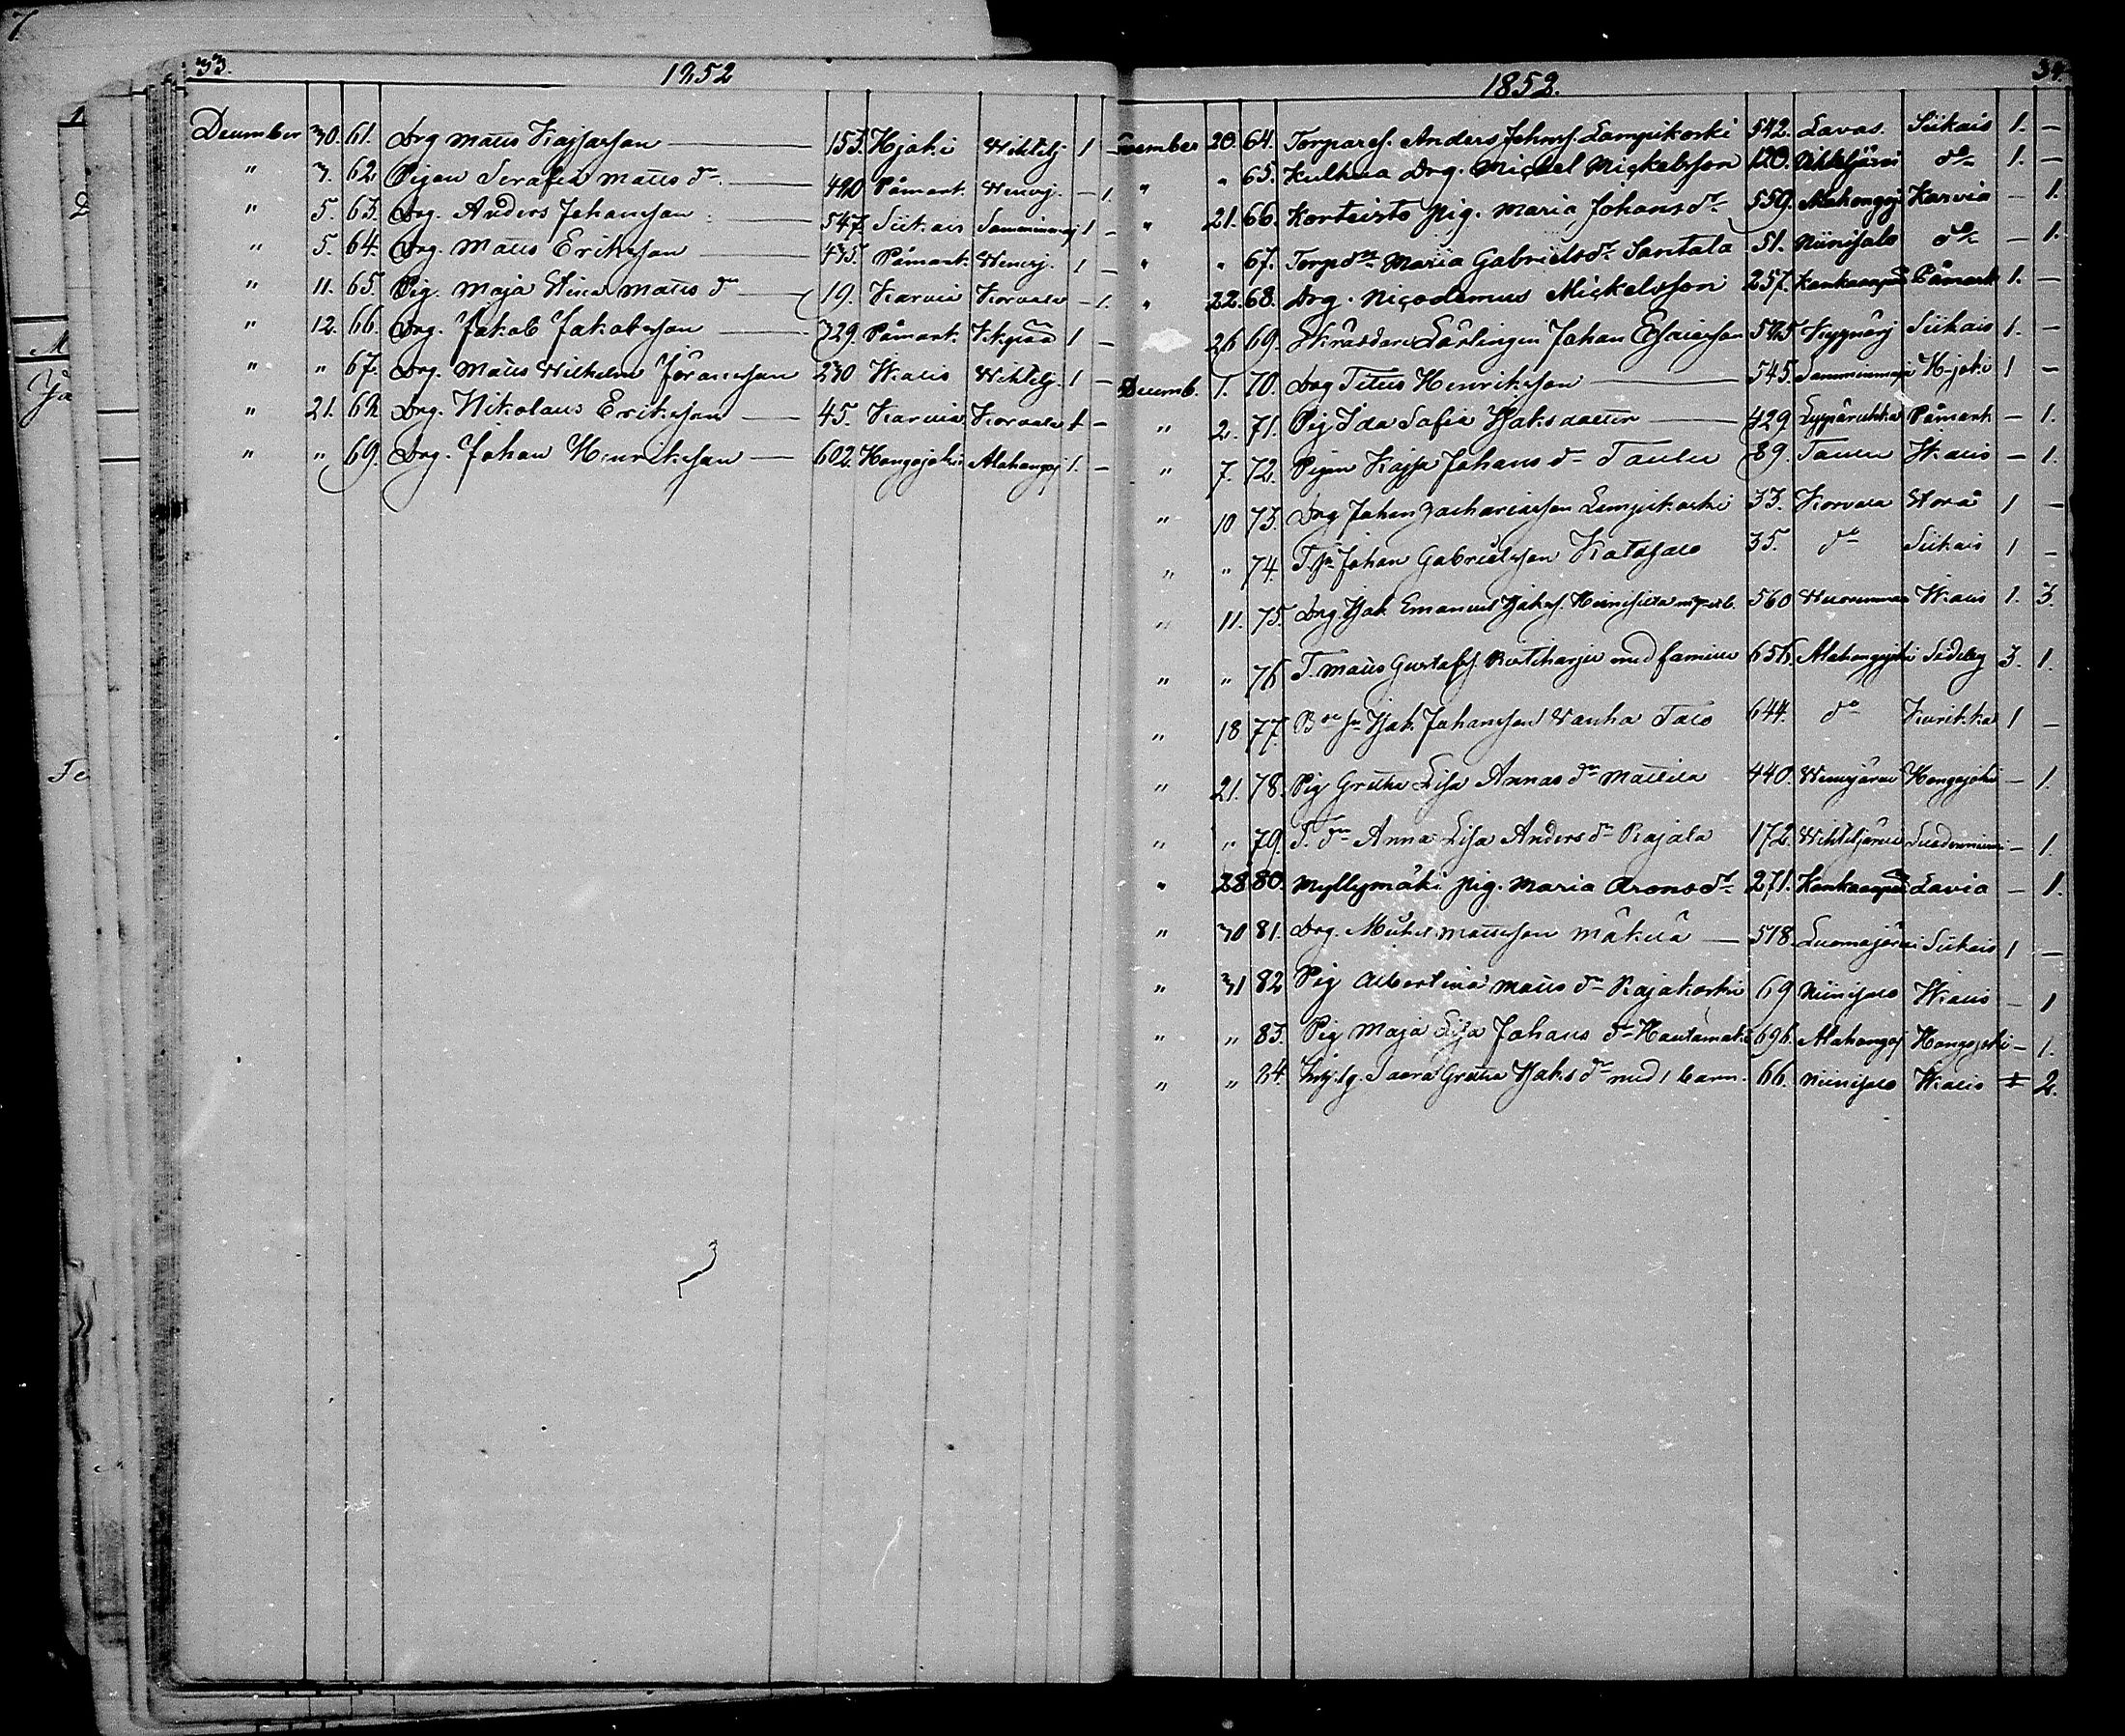 7
33.
1852
December 30. 61. Drg Matts Kajsasson 153. Hjoki Wihtelj 1 —
" 3. 62 Pigan Serafia Matts dr. 490 Påmark. Wenesj. — 1.
" 5. 63. Drg. Anders Johansson 547. Siikais Samminmaj 1 —
" 5. 64. Drg. Matts Eriksson 435. Påmark. Wenesj. 1 —
" 11. 65. Pig. Maja Stina Matts dr 19. Karvia Korvala — 1.
" 12. 66. Drg. Jakob Jakobsson 329. Påmark. 1 —
" " 67. Drg. Matts Wilhelm Göransson 230 Ikalis Wihtelj. 1 —
" 21. 68. Drg. Nikolaus Eriksson 45. Karvia Korvala 1 —
" " 69. Drg. Johan Henriksson 602. Hongojoki Alahongoj 1. —
34
1852.
November 20. 64. Torpares. Anders Johnss. Lampikoski 542. Lavas. Siikais 1. —
" " 65. Kulhua Drg. Mickel Mickelsson 120. Wihteljärvi do 1. —
" 21. 66. Korteisto pig. Maria Johansdr 559. Alahongoj Karvia — 1.
" " 67. Torpdr. Maria Gabrielsdr Santala 51. Niinisalo do — 1.
" 22. 68. Drg. Nicodemus Mickelsson 257. Kankaanpää Påmark 1. —
26 69. Skräddare Lärlingen Johan Esaiasson 525 Siikais 1. —
Decemb. 1. 70. Drg Titus Henriksson 545. Samminmaja Hjoki 1 —
" 2. 71. Pig Ida Sofia Isaksdotter 429 Påmark — 1.
" 7. 72. Pigan Kajsa Johans dr Taulu 89. Taulu Ikalis — 1.
" 10 73. Drg Johan Zachariasson Lampikoski 33. Korvala Storå 1 —
" " 74. Johan Gabrielsson Katasalo 35. do Siikais 1 —
" 11. 75. Drg. Isak Emanuel Isakss. 560 Ikalis 1. 3.
" " 76 T. Matts Gustafss. med familie 656 Alahongojoki Sideby 3. 1.
" 18 77. Isak Johansson Wanha Talo 644. do Kurikka 1 —
" 21. 78. Pig Gretha Lisa Annas dr Mattila 440. Wenesjärvi Hongojoki — 1.
" " 79. T. dr Anna Lisa Anders dr Rajala 172. Wihteljärvi — 1.
" 28 80. Myllymäki pig. Maria Aronsdr 271. Kankaanpää Lavia — 1.
" 30 81. Drg. Mikel Mattsson Mäkilä 518. Luomajärvi Siikais 1 —
" 31 82 Pig Albertina Matts dr Rajakoski 69 Niinisalo Ikalis — 1
" " 83. Pig Maja Lisa Johans dr Hautamäki 696. Alahongoj Hongojoki — 1.
" " 84. Saara Gretha Isaks dr med 1 barn. 66. Niinisalo Ikalis 2.